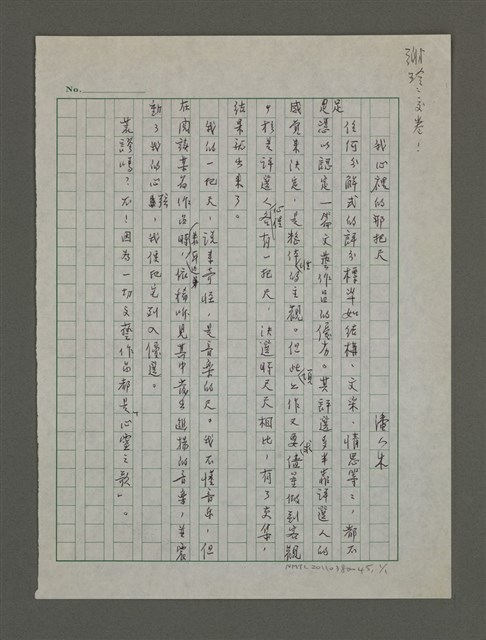 謝玲之文卷！
No.
我心裡的那把尺
潘人木
任何分解式的評分標準如結構、文采、情思等等，都不足
足憑以認定一篇文藝作品的優劣。其評選多半靠評選人的
感覺來決定，是整體性的主觀。但此項工作又要求儘量做到客觀
，於是評選人心裡各有一把尺，決選時尺尺相比，有了交集，
結果就出來了。
我的一把尺，說來奇怪，是音樂的尺。我不懂音樂，但
在閱讀某篇作品時，依稀聽見其中發生悠揚的音樂，並震
動了我的心弦，我便把它列入優選。
荒謬嗎？不！因為一切文藝作品都是「心靈之歌」。
NMTL20110380045, 1/1